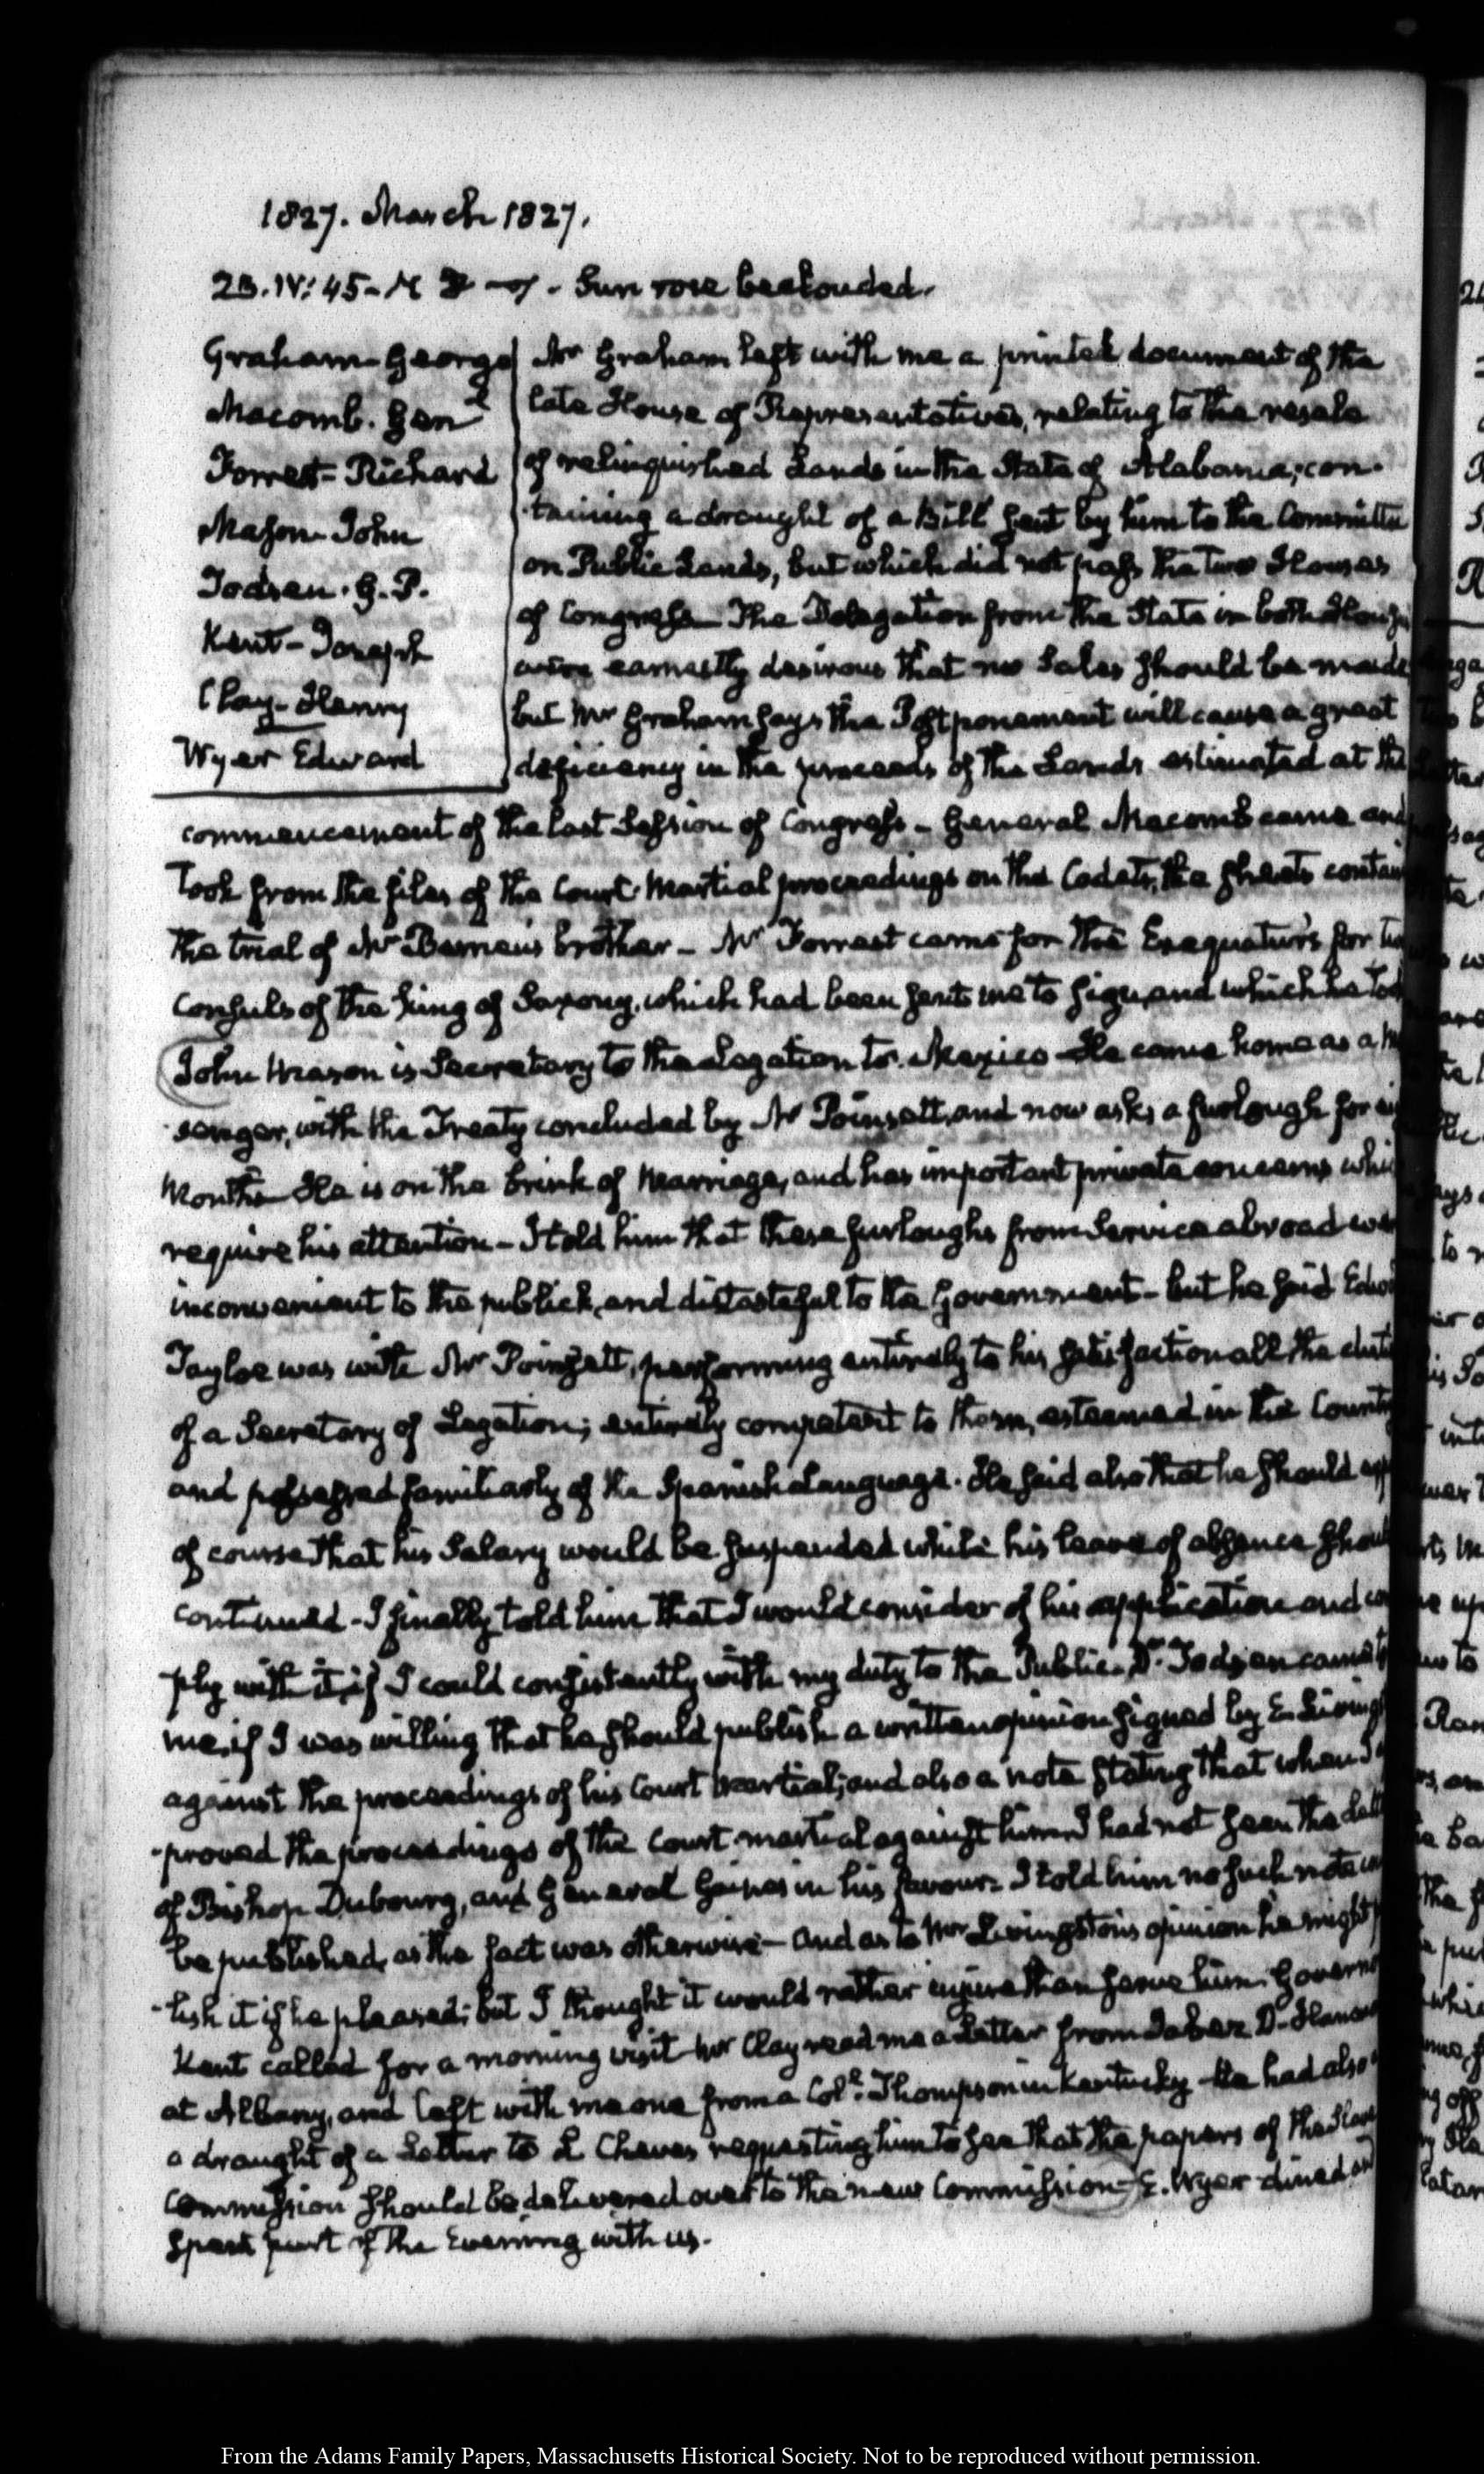 1827. March 1827.
23. IV: 45 - Sun rose beclouded.
Graham - George
Macomb. Genl
Forrest - Richard
Mason - John
Todsen. G. P.
Kent - Joseph
Clay - Henry
Wyer Edward
Mr Graham left with me a printed document of the
late House of Representatives, relating to the resale
of relinquished Lands in the State of Alabama; con-
taining a draught of a Bill sent by him to the Committee
on Public Lands, but which did not pass the two Houses
of Congress - The Delegation from the State in both Houses
were earnestly desirous that no Sales should be made
but Mr Graham says the Postponement will cause a great
deficiency in the proceeds of the Lands estimated at the
commencement of the last Session of Congress - General Macomb came and
took from the files of the Court-Martial proceedings on the Cadets, the sheets contain
the trial of Mr brother - Mr Forrest came for the Exequaturs for
Consuls of the King of Saxony, which had been sent me to sign, and which he
John Mason is Secretary to the Legation to Mexico - He came home as a
senger, with the Treaty concluded by Mr Poinsett, and now asks a furlough for
Months - He is on the brink of Marriage, and has important private concerns
require his attention - I told him that these furloughs from Service abroad
inconvenient to the publick, and distasteful to the Government - but he said
Tayloe was with Mr Poinsett, performing entirely to his satisfaction all the
of a Secretary of Legation; entirely competent to them, esteemed in the Country
and possessed familiarly of the Spanish Language. He said also that he should
of course that his Salary would be suspended while his leave of absence
continued - I finally told him that I would consider of his application and
ply with it, if I could consistently with my duty to the Public. Dr Todsen came
me, if I was willing that he should publish a written opinion signed by E.
against the proceedings of his Court Martial; and also a note stating that when I
proved the proceedings of the Court-martial against him I had not seen the
of Bishop Dubourg, and General Gaines in his favour - I told him no such note
be published, as the fact was otherwise - and as to Mr Livingston's opinion he might
lish it if he pleased; but I thought it would rather injure than serve him. Governor
Kent called for a morning visit - Mr Clay read me a Letter from Jabez D.
at Albany, and left with me one from a Coll. Thompson in Kentucky - He had also
a draught of a Letter to L Cheves requesting him to see that the papers of the Slave
Commission should be delivered over to the new Commission - E. Wyer dined and
spent part of the Evening with us.
From the Adams Family Papers, Massachusetts Historical Society. Not to be reproduced without permission.